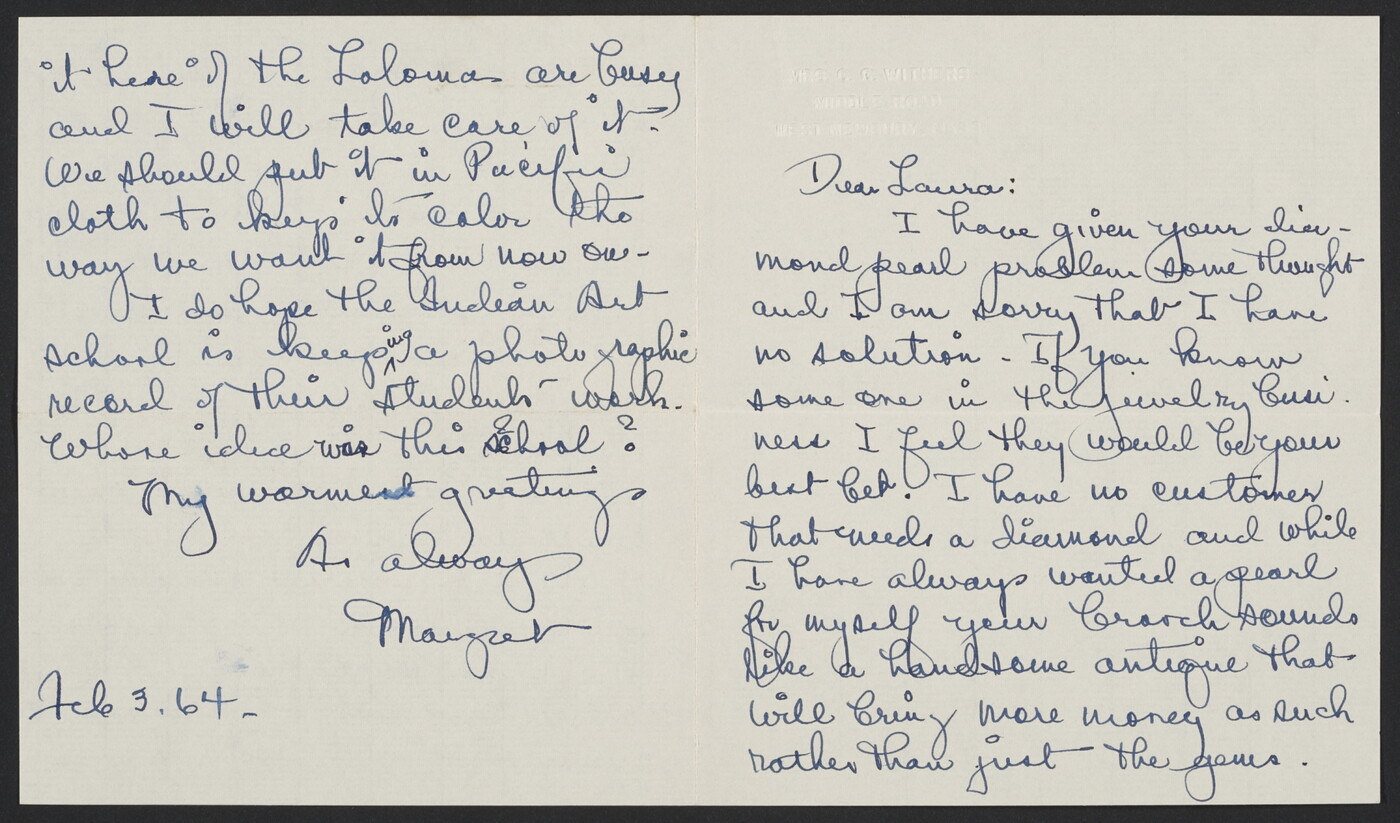 it here if the Lolomas are busy
and I will take care of it.
We should put it in Pacific
cloth to keep its color the
way we want it from now on-
I do hope the Indian Art
school is keeping a photographic
record of their students' work.
Whose idea was this school?
My warmest greetings
As always
Margret
Feb 3. 64-
MRS C. G. WITHERS
Dear Laura:
I have given your dia-
mond pearl problem some thought
and I am sorry that I have
no solution - If you know
some one in the jewelry busi-
ness I feel they would be your
best bet. I have no customer
that needs a diamond and while
I have always wanted a pearl
for myself your brooch sounds
like a handsome antique that
will bring more money as such
rather than just the gems.